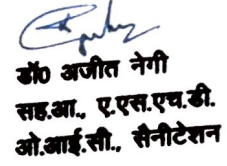 डॉ0 अजीत नेगी
सह.आ., ए.एस.एच.डी.
ओ.आई.सी., सैनीटेशन